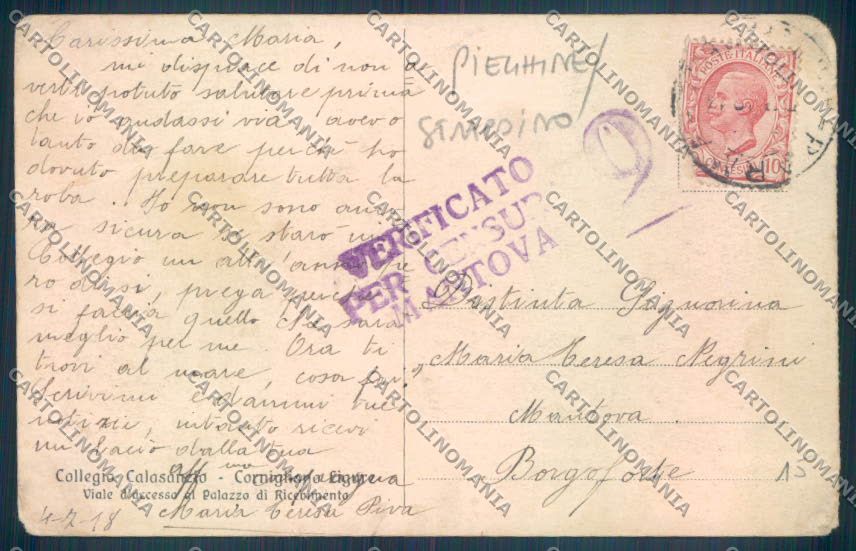 Carissima Maria,
mi dispiace di non a
verti potuto salutare prima
che io andassi via avevo
tanto da fare perchè ho
dovuto preparare tutta la
roba. Io non sono anco
ra sicura se starò in
Collegio un altr'anno
prega perchè
si faccia quello che sarà
meglio per me. Ora ti
trovi al mare, cosa fai.
Scrivimi e dammi tue
notizie, intanto ricevi
un bacio dalla tua
aff.ma
Collegio Calasanzio - Cornigliano Ligure
Viale d'accesso al Palazzo di Ricevimento
4-7-18 Maria Teresa Piva
PIEGHINE/
9
VERIFICATO
PER CENSURA
MANTOVA
POSTE ITALIANE
CENTESIMI 10
Distinta Signorina
Maria Teresa Negrini
Mantova
Borgoforte
CARTOLINOMANIA